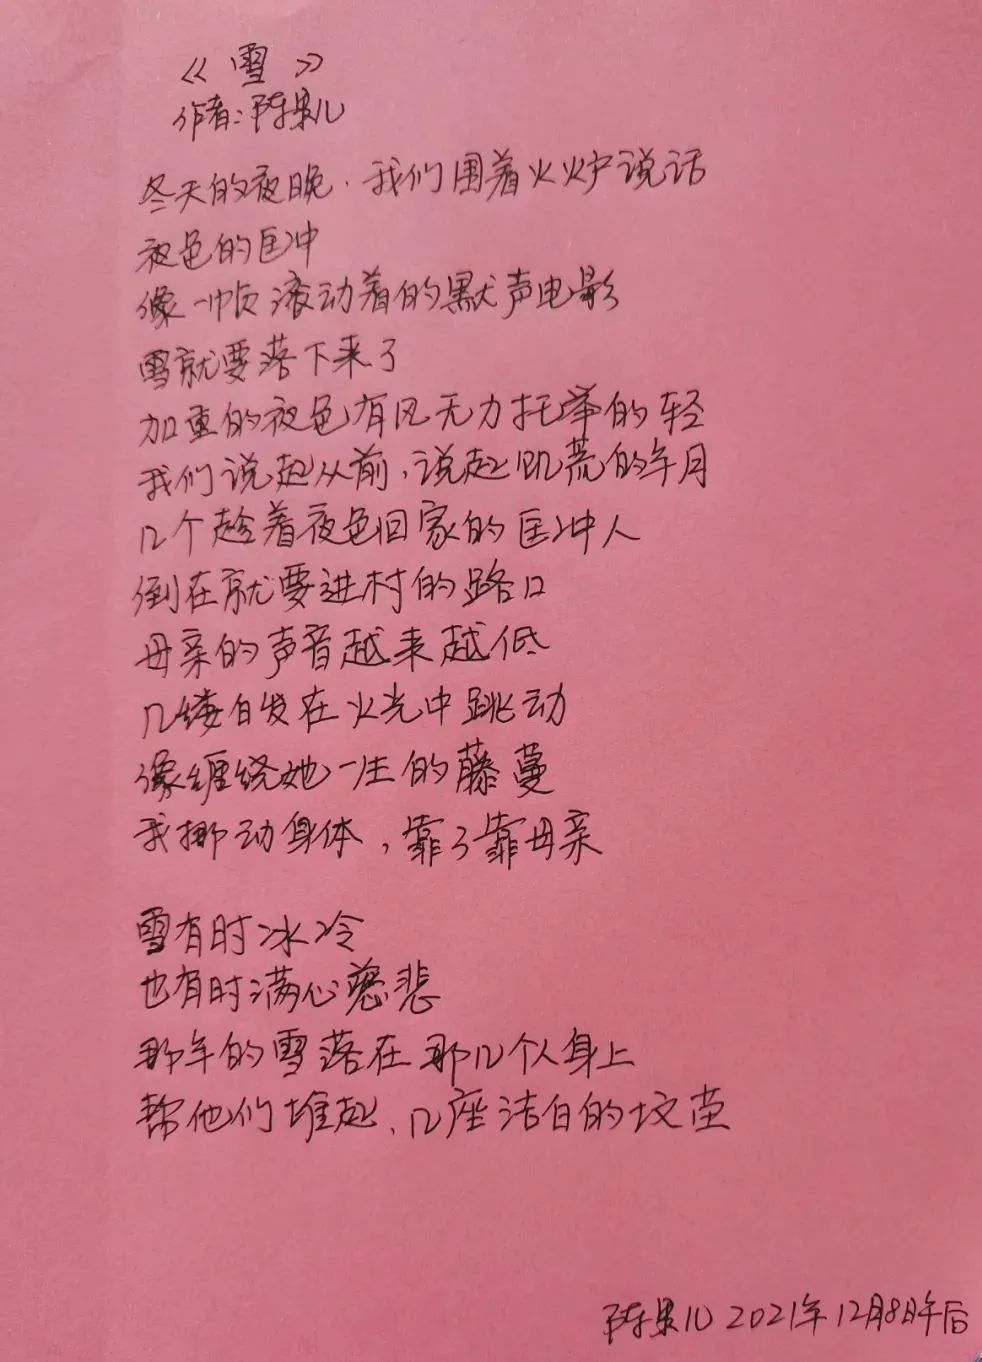 《雪》
作者:陈果儿
冬天的夜晚.我们围着火炉说话
夜色的匡冲
像一帧滚动着的默声电影
雪就要落下来了
加重的夜色有风无力托举的轻
我们说起从前,说起饥荒的年月
几个趁着夜色回家的匡冲人
倒在就要进村的路口
母亲的声音越来越低
几缕白发在火光中跳动
像缠绕她一生的藤蔓
我挪动身体,靠了靠母亲
雪有时冰冷
也有时满心慈悲
那年的雪落在那几个人身上
帮他们堆起、几座洁白的坟茔
陈果儿 2021年12月8日午后